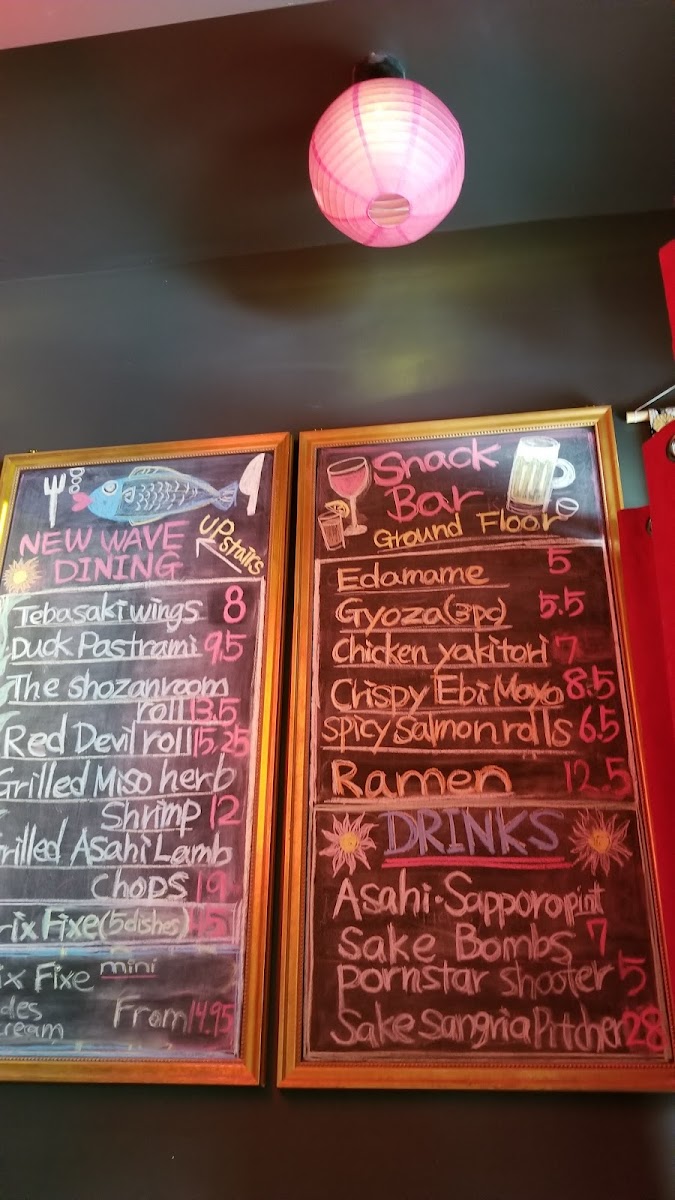 NEW WAVE
DINING
UP
stairs
Tebasaki wings 8
Duck Pastrami 9.5
The shozanroom
roll 13.5
Red Devil roll 15.25
Grilled Miso herb
Shrimp 12
rilled Asahi Lamb
Chops 19
rix Fixe (5 dishes)
ix Fixe mini
From 14.95
cream
Snack
Bar
Ground Floor
Edamame 5
Gyoza (3pc) 5.5
Chicken yakitori 7
Crispy Ebi Mayo 8.5
Spicy Salmon rolls 6.5
Ramen 12.5
DRINKS
Asahi · Sapporo pint
Sake Bombs 7
pornstar shooter 5
Sake sangria Pitcher 28